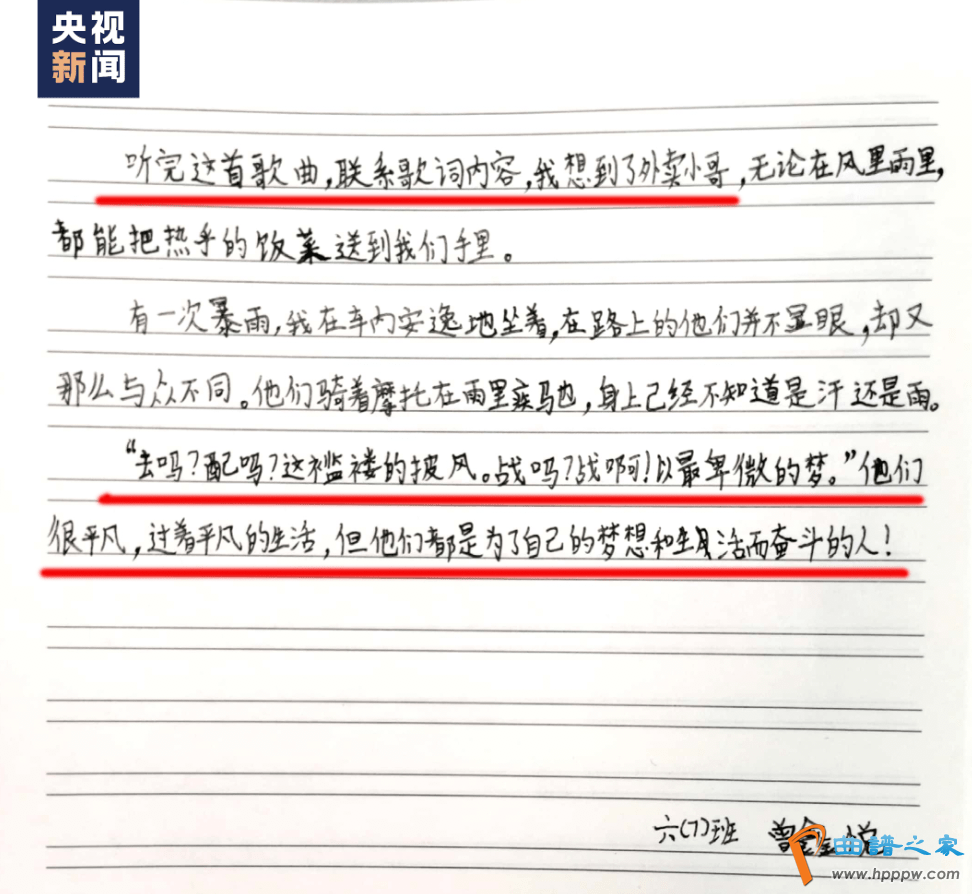 央视
新闻
听完这首歌曲,联系歌词内容,我想到了外卖小哥,无论在风里雨里,
都能把热乎的饭菜送到我们手里。
有一次暴雨,我在车内安逸地坐着,在路上的他们并不显眼,却又
那么与众不同。他们骑着摩托在雨里疾驰,身上已经不知道是汗还是雨。
“去吗?配吗?这褴褛的披风。战吗?战啊!以最卑微的梦。”他们
很平凡,过着平凡的生活,但他们都是为了自己的梦想和生活而奋斗的人!
六(7)班 曾 悦
曲谱之家
www.hpppw.com